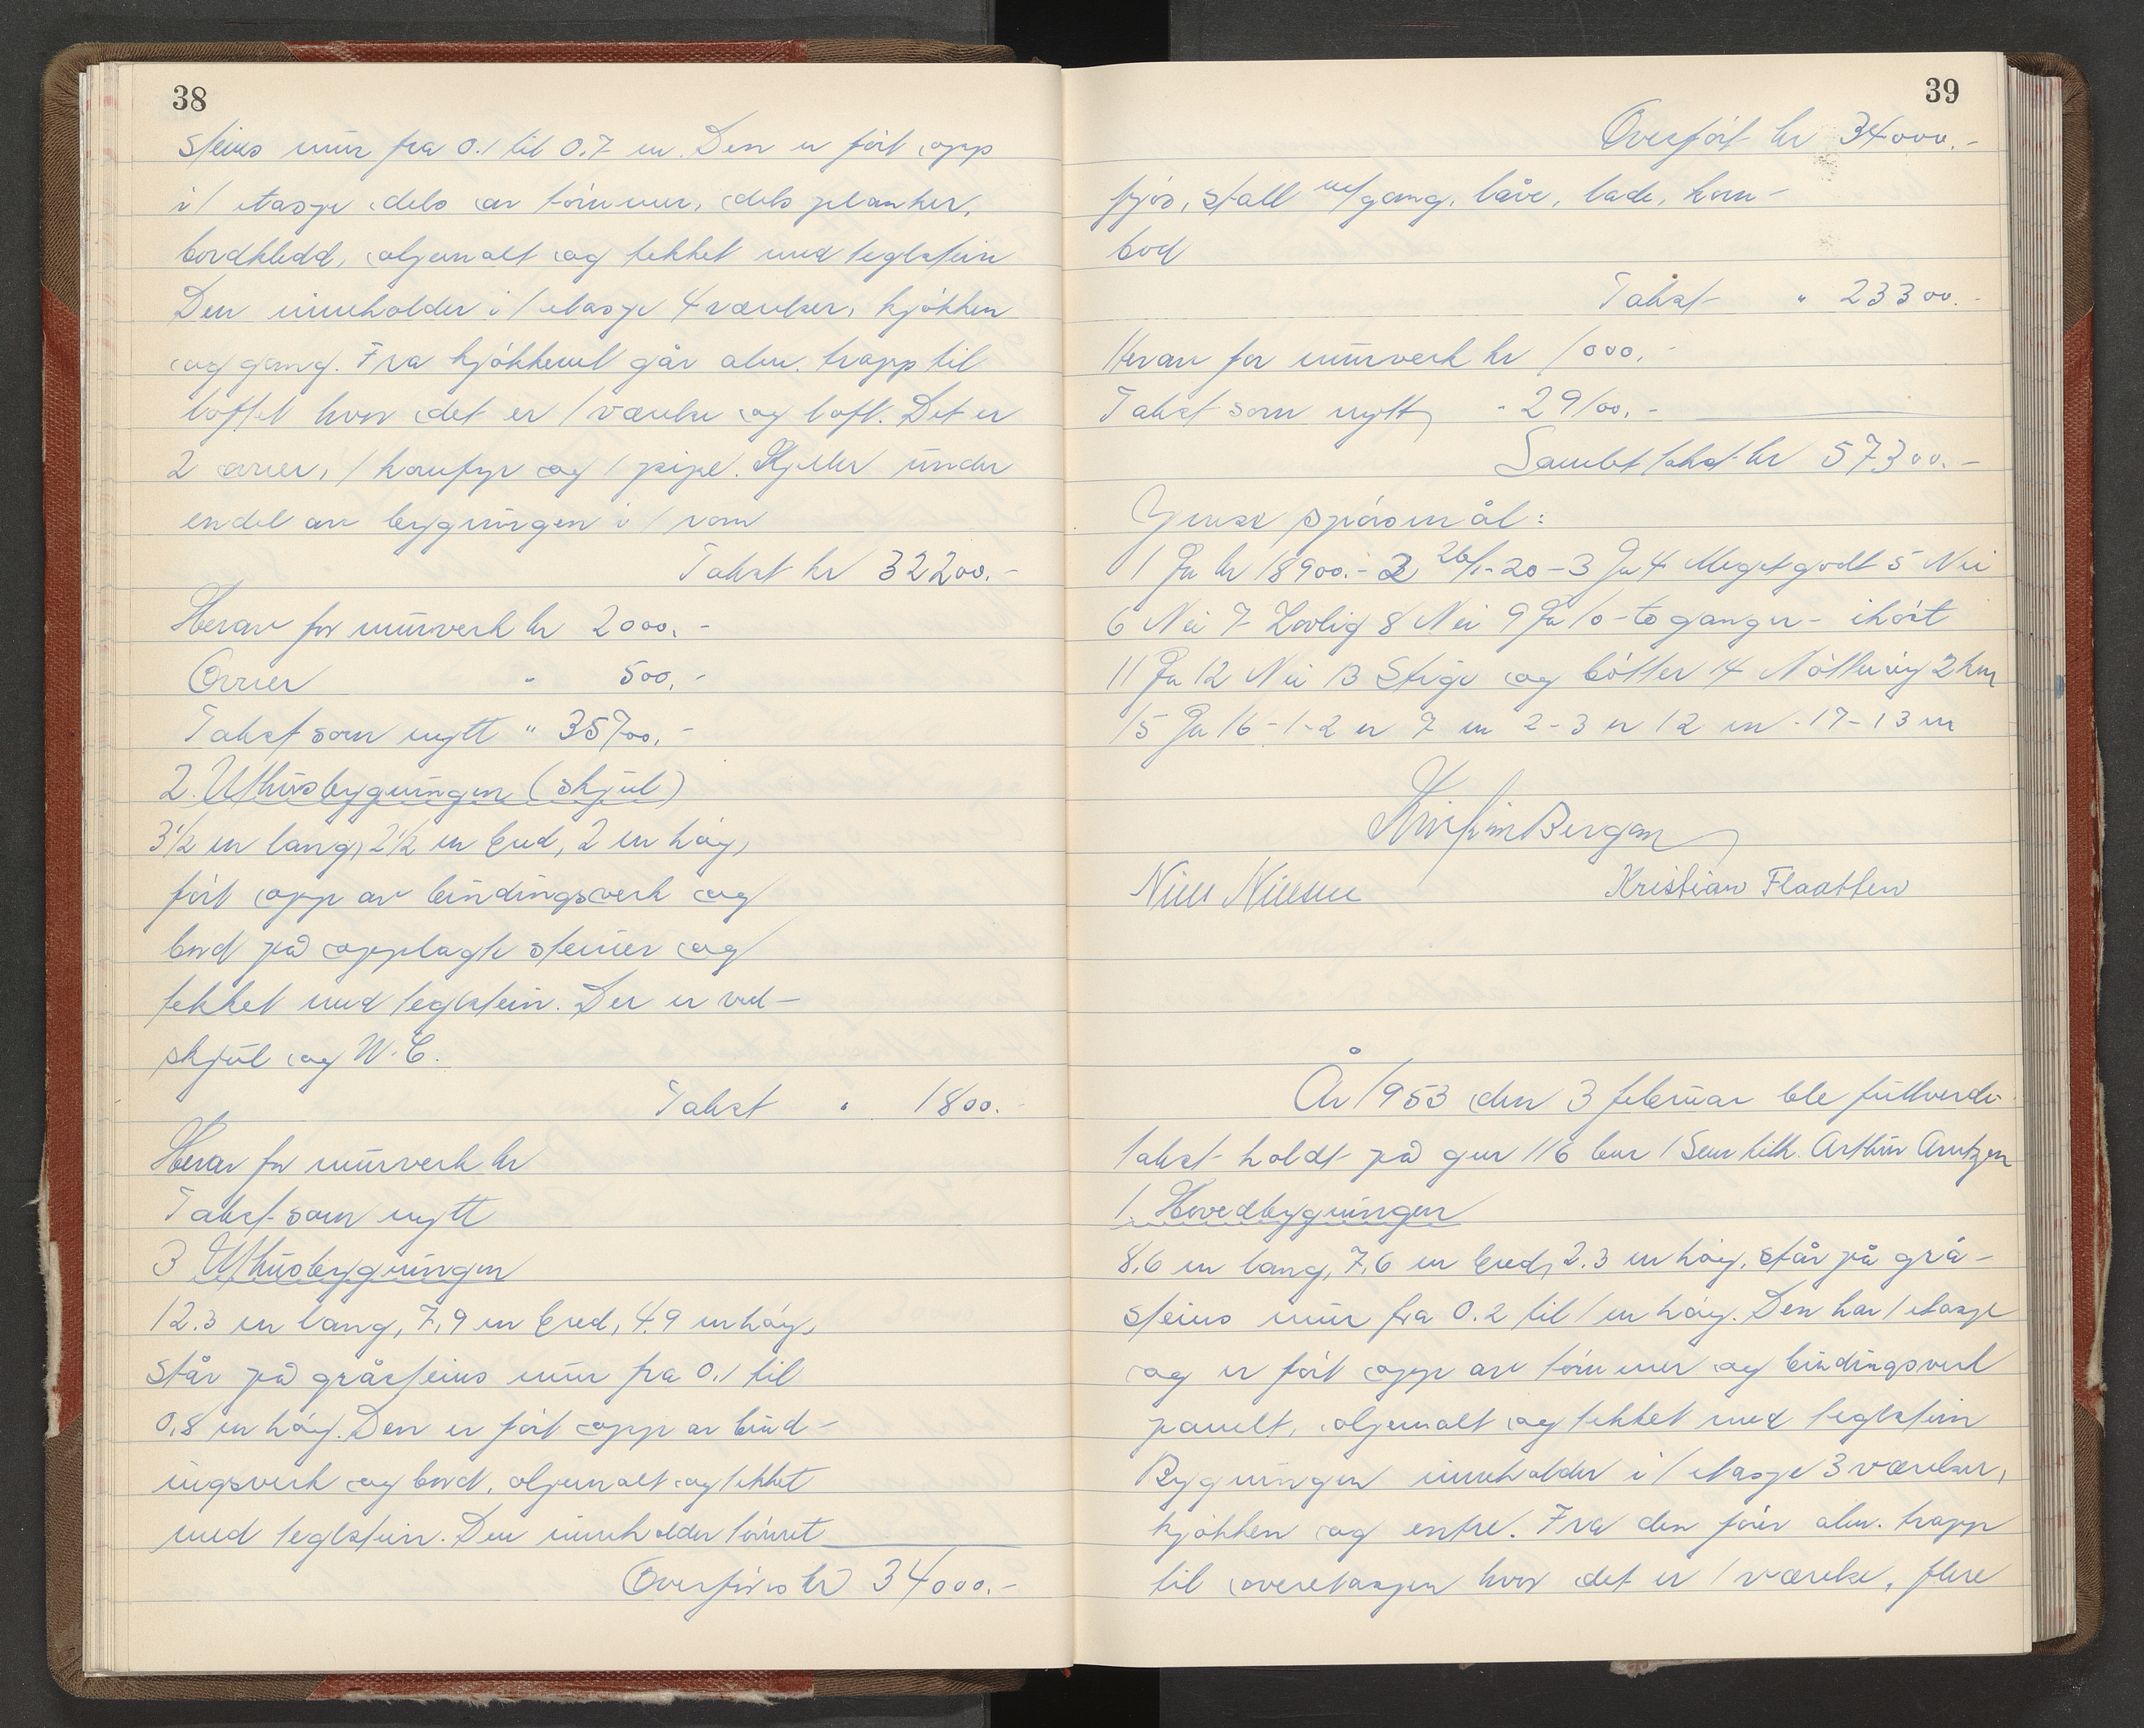 38
steins mur fra 0.1 til 0.7 m. Den er ført opp
i 1 etasje dels av tømmer, dels planker,
bordkledd, oljemalt og tekket med teglstein
Den inneholder i 1 etasje 4 værelser, kjøkken
og gang. Fra kjøkkenet går alm. trapp til
loftet hvor det er 1 værelse og loft. Det er
2 ovner, 1 komfyr og 1 pipe. Kjeller under
endel av bygningen i 1 rom
Takst kr 32200.-
Herav for murverk kr 2000.-
Ovner " 500.-
Takst som nytt " 35700.-
2. Uthusbygningen (skjul)
3½ m lang, 2½ m bred, 2 m høy,
ført opp av bindingsverk og
bord på opplagte steiner og
tekket med teglstein. Der er ved-
skjul og W.C.
Takst " 1800.-
Herav for murverk kr
Takst som nytt
3 Uthusbygningen
12.3 m lang, 7,9 m bred, 4.9 m høy,
står på gråsteins mur fra 0.1 til
0,8 m høy. Den er ført opp av bind-
ingsverk og bord, oljemalt og tekket
med teglstein. Den inneholder tømret
Overføres kr 34000.-
39
Overført kr 34000.-
fjøs, stall m/gang, låve, lade, korn-
bod
Takst " 23300.-
Herav for murverk kr 1000.-
Takst som nytt " 29100.-
Samlet takst kr 57300.-
Ymse spørsmål:
1 Ja kr 18900.- 2 26/1-20 - 3 Ja 4 Meget godt 5 Nei
6 Nei 7 Lovlig 8 Nei 9 Ja 10 - to ganger - i høst
11 Ja 12 Nei 13 Stige og bøtter 14 Nøtterøy 2 km
15 Ja 16 - 1-2 er 7 m 2-3 er 12 m - 17 - 13 m
Bergan
Niels Nielsen Kristian Flaatten
År 1953 den 3 februar ble fullverdi-
takst holdt på gnr 116 bnr 1 Sem tilh. Arthur Arntzen
1. Hovedbygningen
8,6 m lang, 7,6 m bred, 2.3 m høy, står på grå-
steins mur fra 0.2 til 1 m høy. Den har 1 etasje
og er ført opp av tømmer og bindingsverk
panelt, oljemalt og tekket med teglstein
Bygningen inneholder i 1 etasje 3 værelser,
kjøkken og entre. Fra den fører alm. trapp
til overetasjen hvor det er 1 værelse, flere